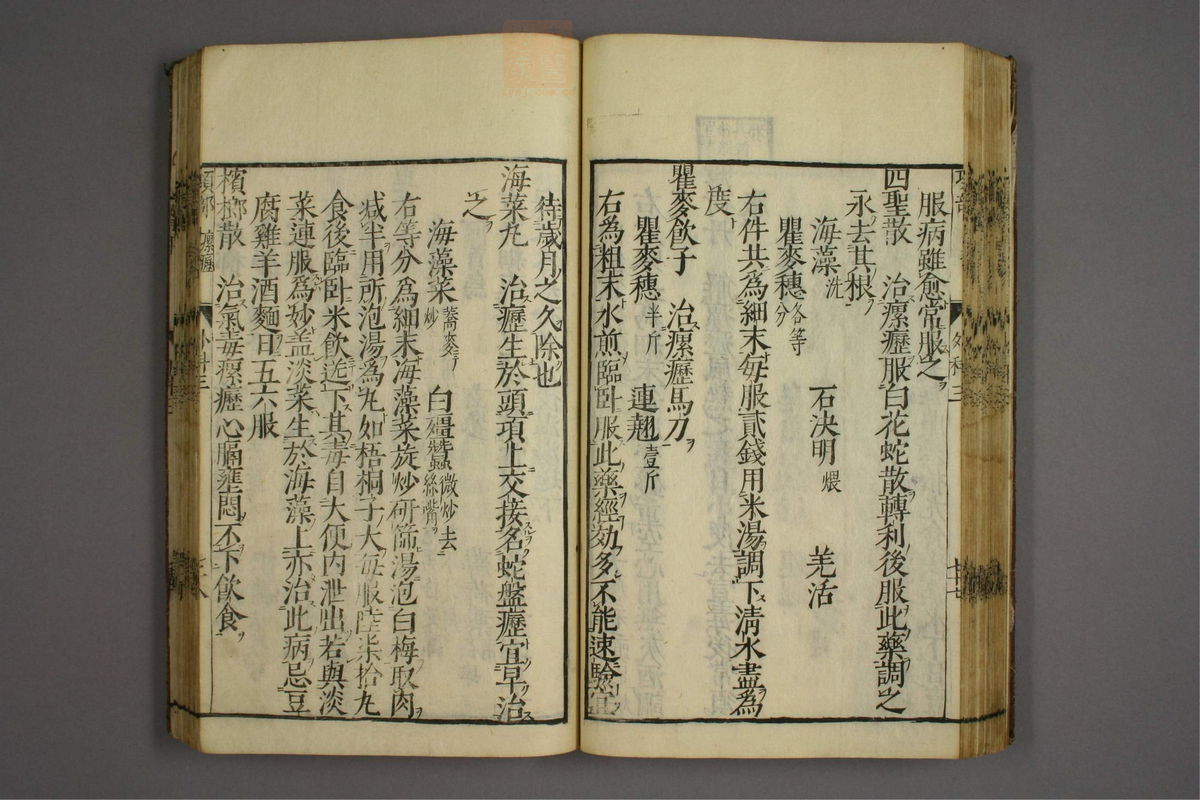 服病雖愈常服之
四聖散　治瘰癧服白花蛇散轉利後服此藥調之
永去其根
海藻洗　石決明煨　羌活
瞿麥穗各等分
右件共為細末每服貳錢用米湯調下清水盡為
度
瞿麥飲子　治瘰癧馬刀
瞿麥穗半斤　連翹壹斤
右為粗末水煎臨臥服此藥經効多不能速驗宜
待歲月之久除也
海菜丸　治癧生於頭項上交接名蛇盤癧宜早治
之
海藻菜蕎麥炒　白殭蠶微炒去絲嘴
右等分為細末海藻菜旋炒研篩湯泡白梅取肉
減半用所泡湯為丸如梧桐子大每服陸柒拾丸
食後臨臥米飲送下其毒自大便內泄出若與淡
菜連服為妙盖淡菜生於海藻上亦治此病忌豆
腐雞羊酒麵日五六服
檳榔散　治氣毒瘰癧心膈壅悶不下飲食